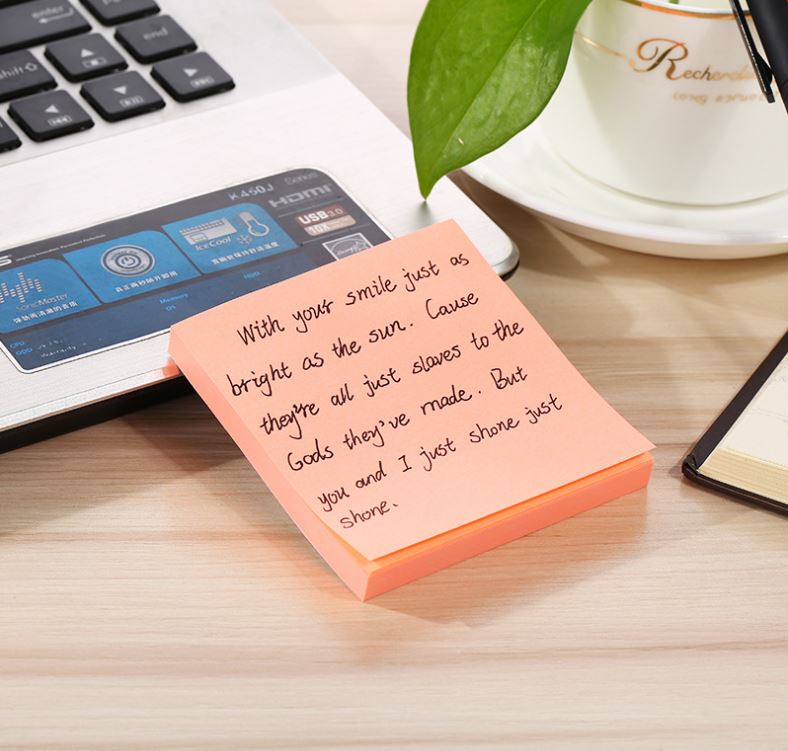 enter
shift
end
K450J Series
HDMI
USB3.0
10X
IceCool
SonicMaster
Memory
HDD
CPU
With your smile just as
bright as the sun. Cause
they're all just slaves to the
Gods they've made. But
you and I just shone just
shone.